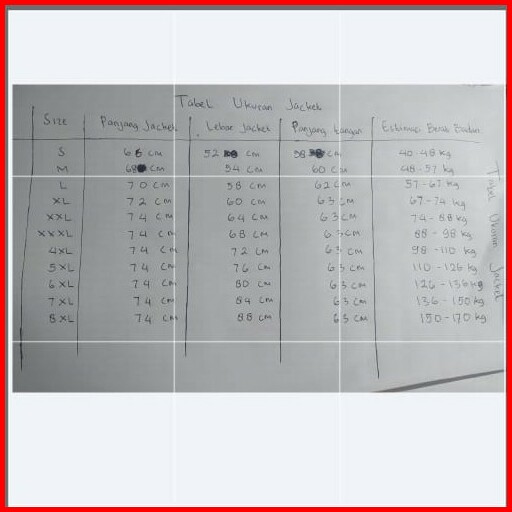 Tabel Ukuran Jacket
Size Panjang Jacket Lebar Jacket Panjang tangan Estimasi Berat Badan
S 66 cm 52 cm 58 cm 40-48 kg
M 68 cm 54 cm 60 cm 48-57 kg
L 70 cm 58 cm 62 cm 57-67 kg
XL 72 cm 60 cm 63 cm 67-74 kg
XXL 74 cm 64 cm 63 cm 74-88 kg
XXXL 74 cm 68 cm 63 cm 88-98 kg
4XL 74 cm 72 cm 63 cm 98-110 kg
5XL 74 cm 76 cm 63 cm 110-126 kg
6XL 74 cm 80 cm 63 cm 126-136 kg
7XL 74 cm 84 cm 63 cm 136-150 kg
8XL 74 cm 88 cm 63 cm 150-170 kg
Tabel Ukuran Jacket